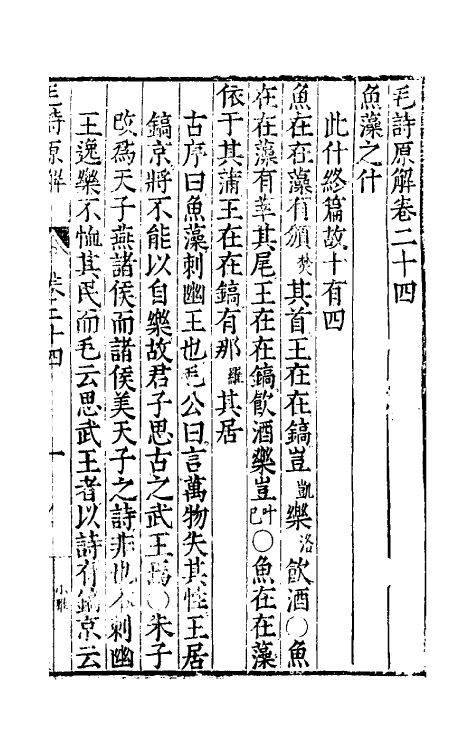 毛詩原解卷二十四
魚藻之什
此什終篇故十有四
魚在在藻有頒焚其首王在在鎬豈凱樂洛飲酒○魚
在在藻有莘其尾王在在鎬飲酒樂豈叶已○魚在在藻
依于其蒲王在在鎬有那羅其居
古序曰魚藻刺幽王也毛公曰言萬物失其性王居
鎬京將不能以自樂故君子思古之武王焉○朱子
改為天子燕諸侯而諸侯美天子之詩非也本刺幽
王逸樂不恤其民而毛云思武王者以詩有鎬京云
毛詩原解 卷二十四 一 小雅